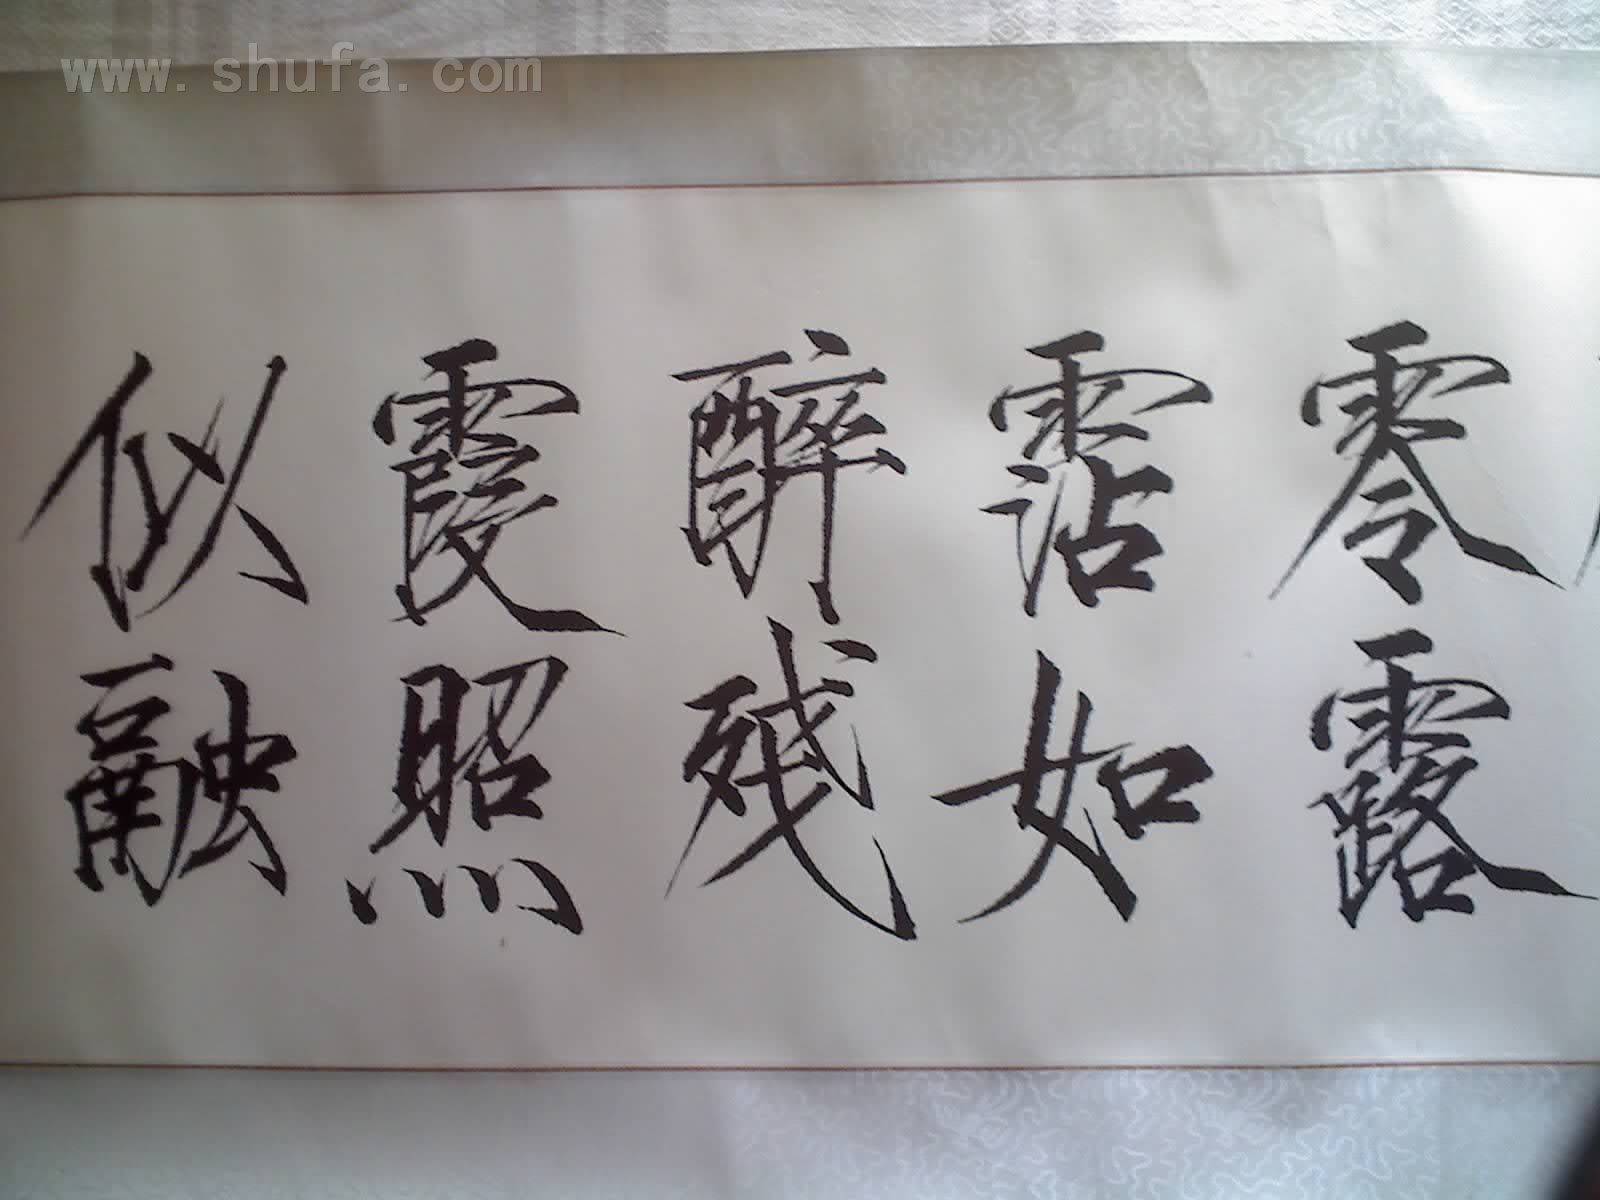 www.shufa.com
零露
霑如
醉残
霞照
似融